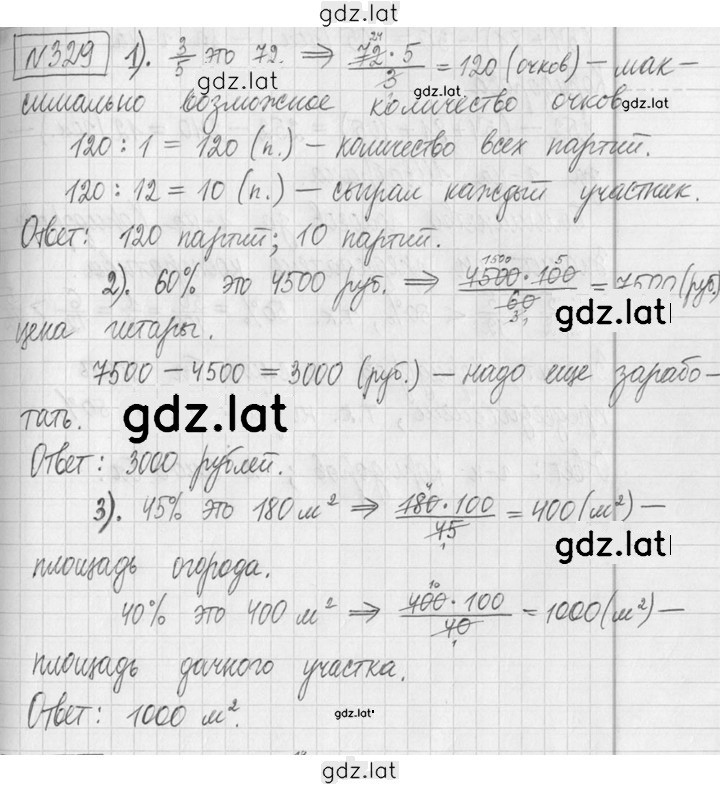 gdz.lat
№329 1). 3/5 это 72. ⇒ 72·5/3 = 120 (очков) – мак-
gdz.lat
симально возможное количество очков
gdz.lat
120 : 1 = 120 (п.) – количество всех партий.
120 : 12 = 10 (п.) – сыграл каждый участник.
Ответ: 120 партий; 10 партий.
2). 60% это 4500 руб. ⇒ 4500·100/60 = 7500 (руб)
gdz.lat
цена гитары.
7500 – 4500 = 3000 (руб.) – надо еще зарабо-
тать.
gdz.lat
Ответ: 3000 рублей.
3). 45% это 180 м² ⇒ 180·100/45 = 400 (м²) –
gdz.lat
площадь огорода.
40% это 400 м² ⇒ 400·100/40 = 1000 (м²) –
площадь дачного участка.
Ответ: 1000 м².
gdz.lat
gdz.lat